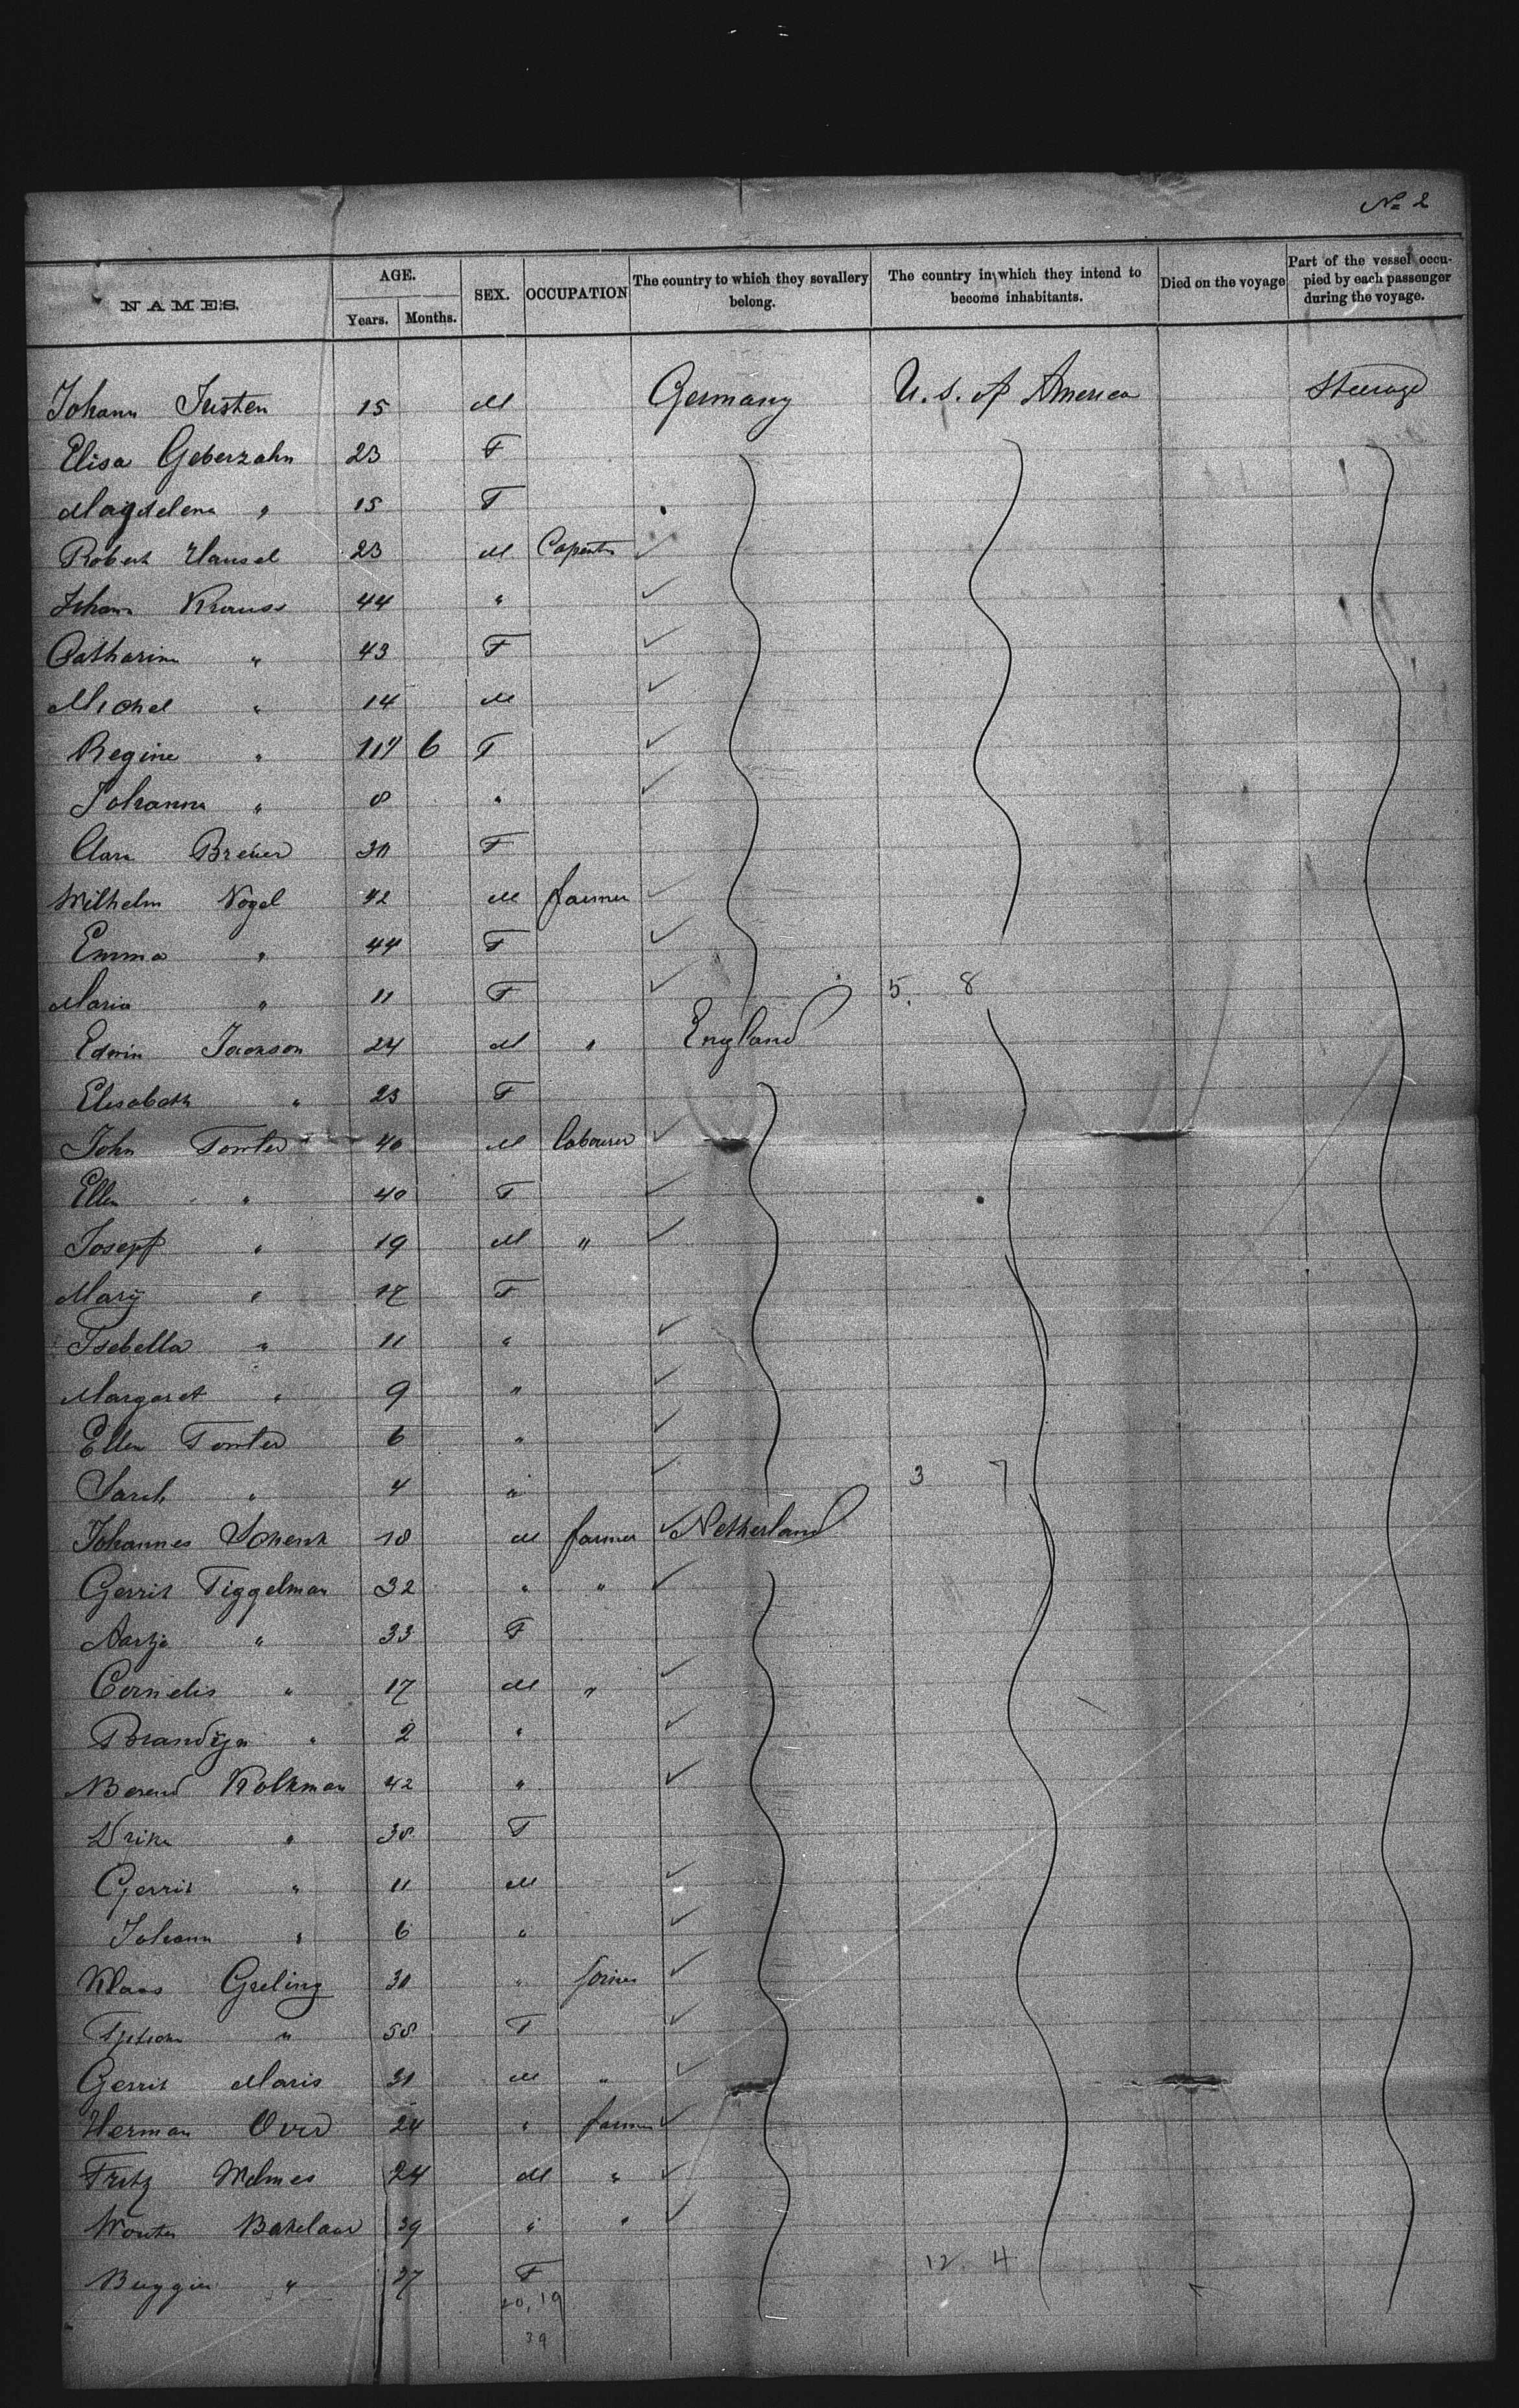 No 2
NAMES. AGE. SEX. OCCUPATION The country to which they sevallery belong. The country in which they intend to become inhabitants. Died on the voyage Part of the vessel occupied by each passenger during the voyage.
Years. Months.
Johann Justen 15 M Germany U. S. of America Steerage
Elisa Geberzahn 23 F
Magdelena " 15 F
Robert Hansel 23 M
Johann Krauss 44 "
Catharina " 43 F
Michel " 14 M
Regine " 6 F
Johanna " 8 "
Clara Breuer 30 F
Wilhelm Vogel 42 M farmer
Emma " 44 F
Maria " 11 F 5. 8
Edwin Jackson 24 M " England
Elisabeth " 23 F
John 40 M labourer
Ellen " 40 F
Josepf " 19 M "
Mary " 17 F
Isebella " 11 "
Margaret " 9 "
Ellen 6 "
Sarah " 4 " 3 7
Johannes Schenk 18 M farmer Netherland
Gerrit Tiggelman 32 " "
Aartje " 33 F
Cornelis " 17 M "
" 2 "
Berend Kolkman 42 "
Drika " 38 F
Gerrit " 11 M
Johann " 6 "
Klaas Greling 30 " farmer
" 58 F
Gerrit Maris 31 M "
Herman 24 " farmer
Fritz 24 M "
Wouter Bakelaar 39 " "
" 37 F 12. 4
20, 19
39